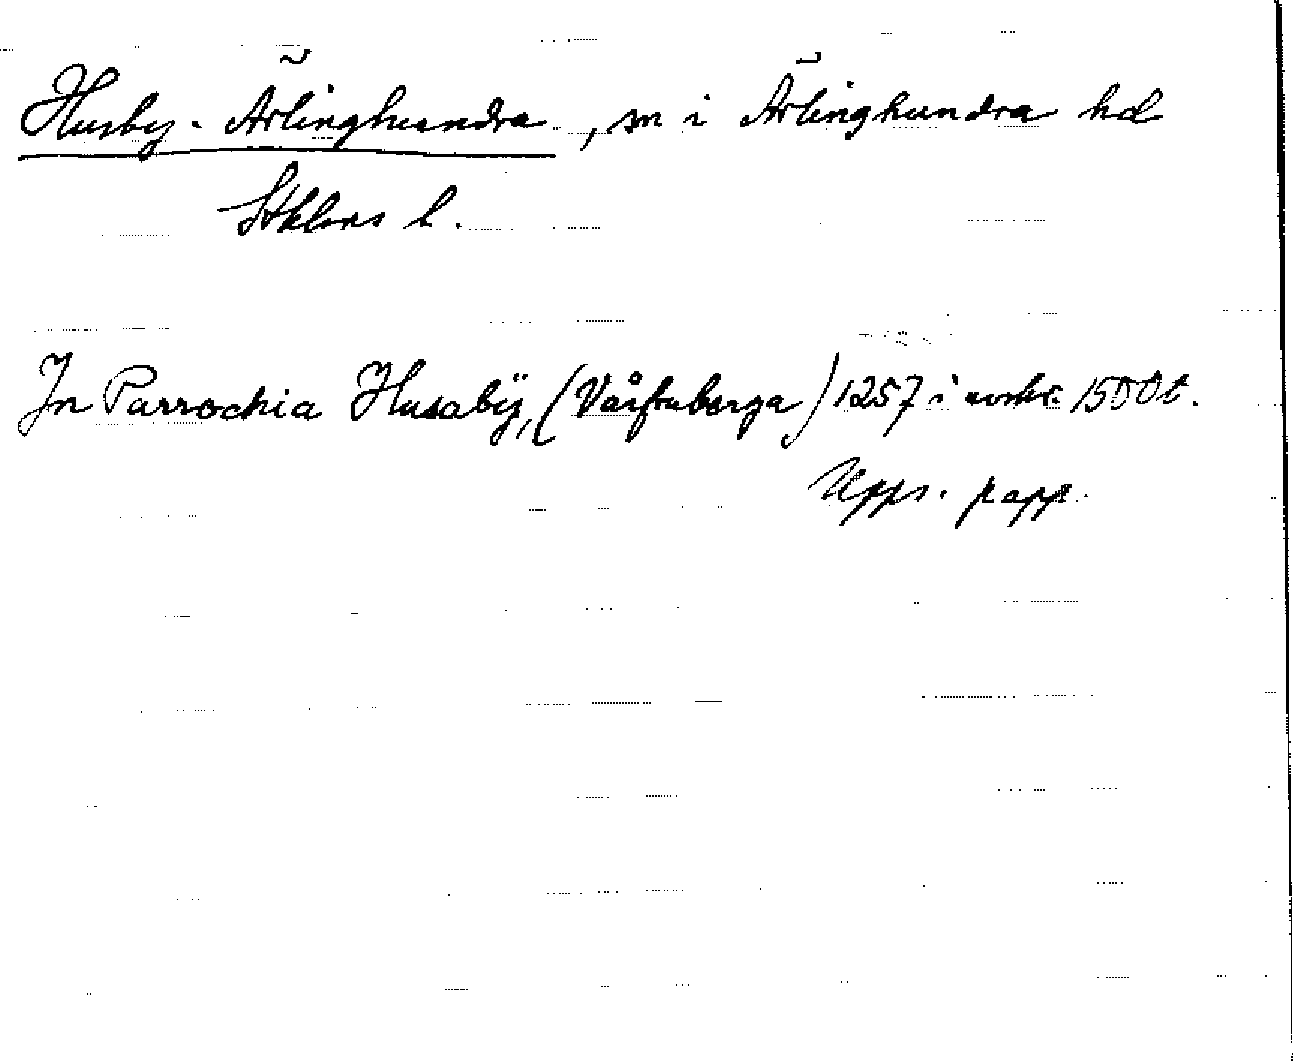 Husby-Ärlinghundra, sn i Ärlinghundra hd
Sthlms l.
In Parrochia Husabÿ, (Vårfruberga) 1257 i avskr. 1500t.
Upps. papp.